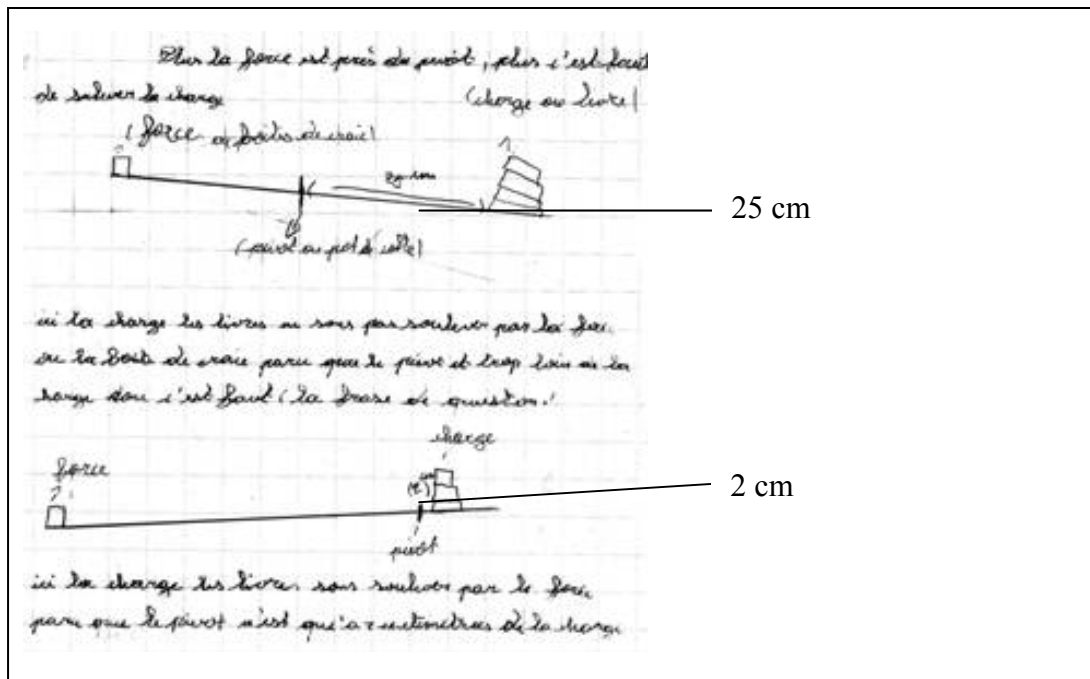 Plus la force est près du pivot, plus c'est facil
de soulever la charge (charge ou livre)
(force ou boîte de craie)
25 cm
(pivot ou pot de colle)
ici la charge les livres ne sons pas soulever par la force
ou la boite de craie parce que le pivot et trop loin de la
charge donc c'est faut (la frase de question.)
charge
force
(2 cm)
2 cm
pivot
ici la charge les livres sons soulever par la force
parce que le pivot n'est qu'a 2 centimètres de la charge